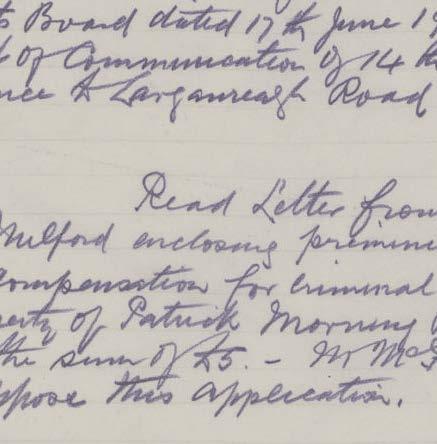 s Board dated 17th June 19
t of Communication of 14 th
nce to Larganreagh Road
Read Letter from
Milford enclosing prelimin
compensation for Criminal
erty of Patrick Morning
the sum of £5. - Mr McF
ppose this application.